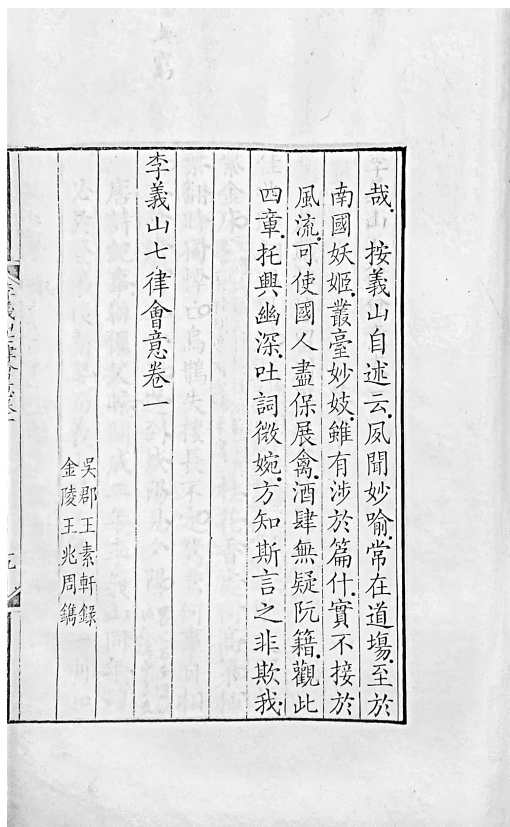 哉按義山自述云夙聞妙喻常在道場至於
南國妖姬叢臺妙妓雖有涉於篇什實不接於
風流可使國人盡保展禽酒肆無疑阮籍觀此
四章托興幽深吐詞微婉方知斯言之非欺我
李義山七律會意卷一
吳郡王素軒錄
金陵王兆周鐫